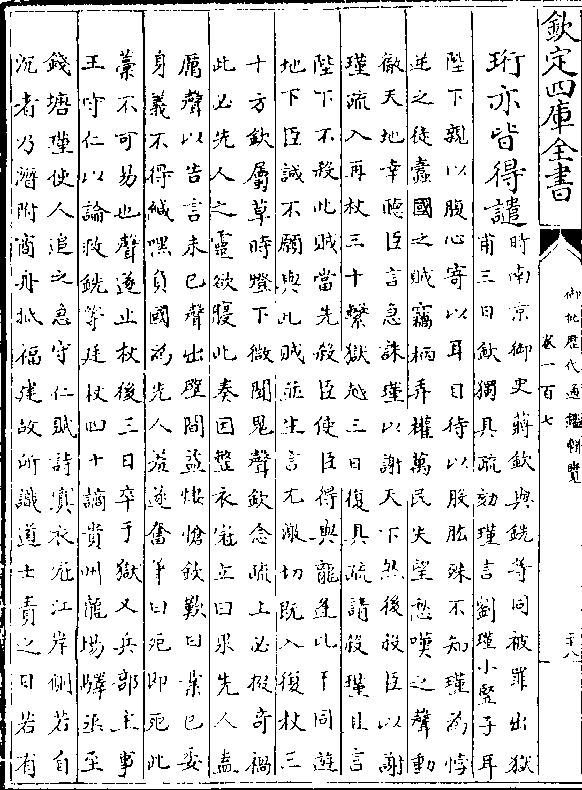 欽定四庫全書
御批歴代通鑑輯覽
卷一百七
珩亦皆得譴
時南京御史蔣欽與銑等同被罪出獄
甫三日欽獨具疏劾瑾言劉瑾小豎子耳
陛下親以腹心寄以耳目待以股肱殊不知瑾為悖
逆之徒蠹國之賊竊柄弄權萬民失望愁嘆之聲動
徹天地幸聽臣言急誅瑾以謝天下然後殺臣以謝
瑾疏入再杖三十繫獄越三日復具疏請殺瑾且言
陛下不殺此賊當先殺臣使臣得與龍逢比干同遊
地下臣誠不願與此賊並生言尤激切既入復杖三
十方欽屬草時燈下微聞鬼聲欽念疏上必掇奇禍
此必先人之靈欲寢此奏因整衣冠立曰果先人盍
厲聲以告言未已聲出壁間益悽愴欽歎曰業已委
身義不得緘嘿負國為先人羞遂奮筆曰死即死此
藁不可易也聲遂止杖後三日卒于獄又兵部主事
王守仁以論救銑等廷杖四十謫貴州龍場驛丞至
錢塘瑾使人追之急守仁賦詩寘衣冠江岸側若自
沉者乃潛附商舟抵福建故所識道士責之曰若有